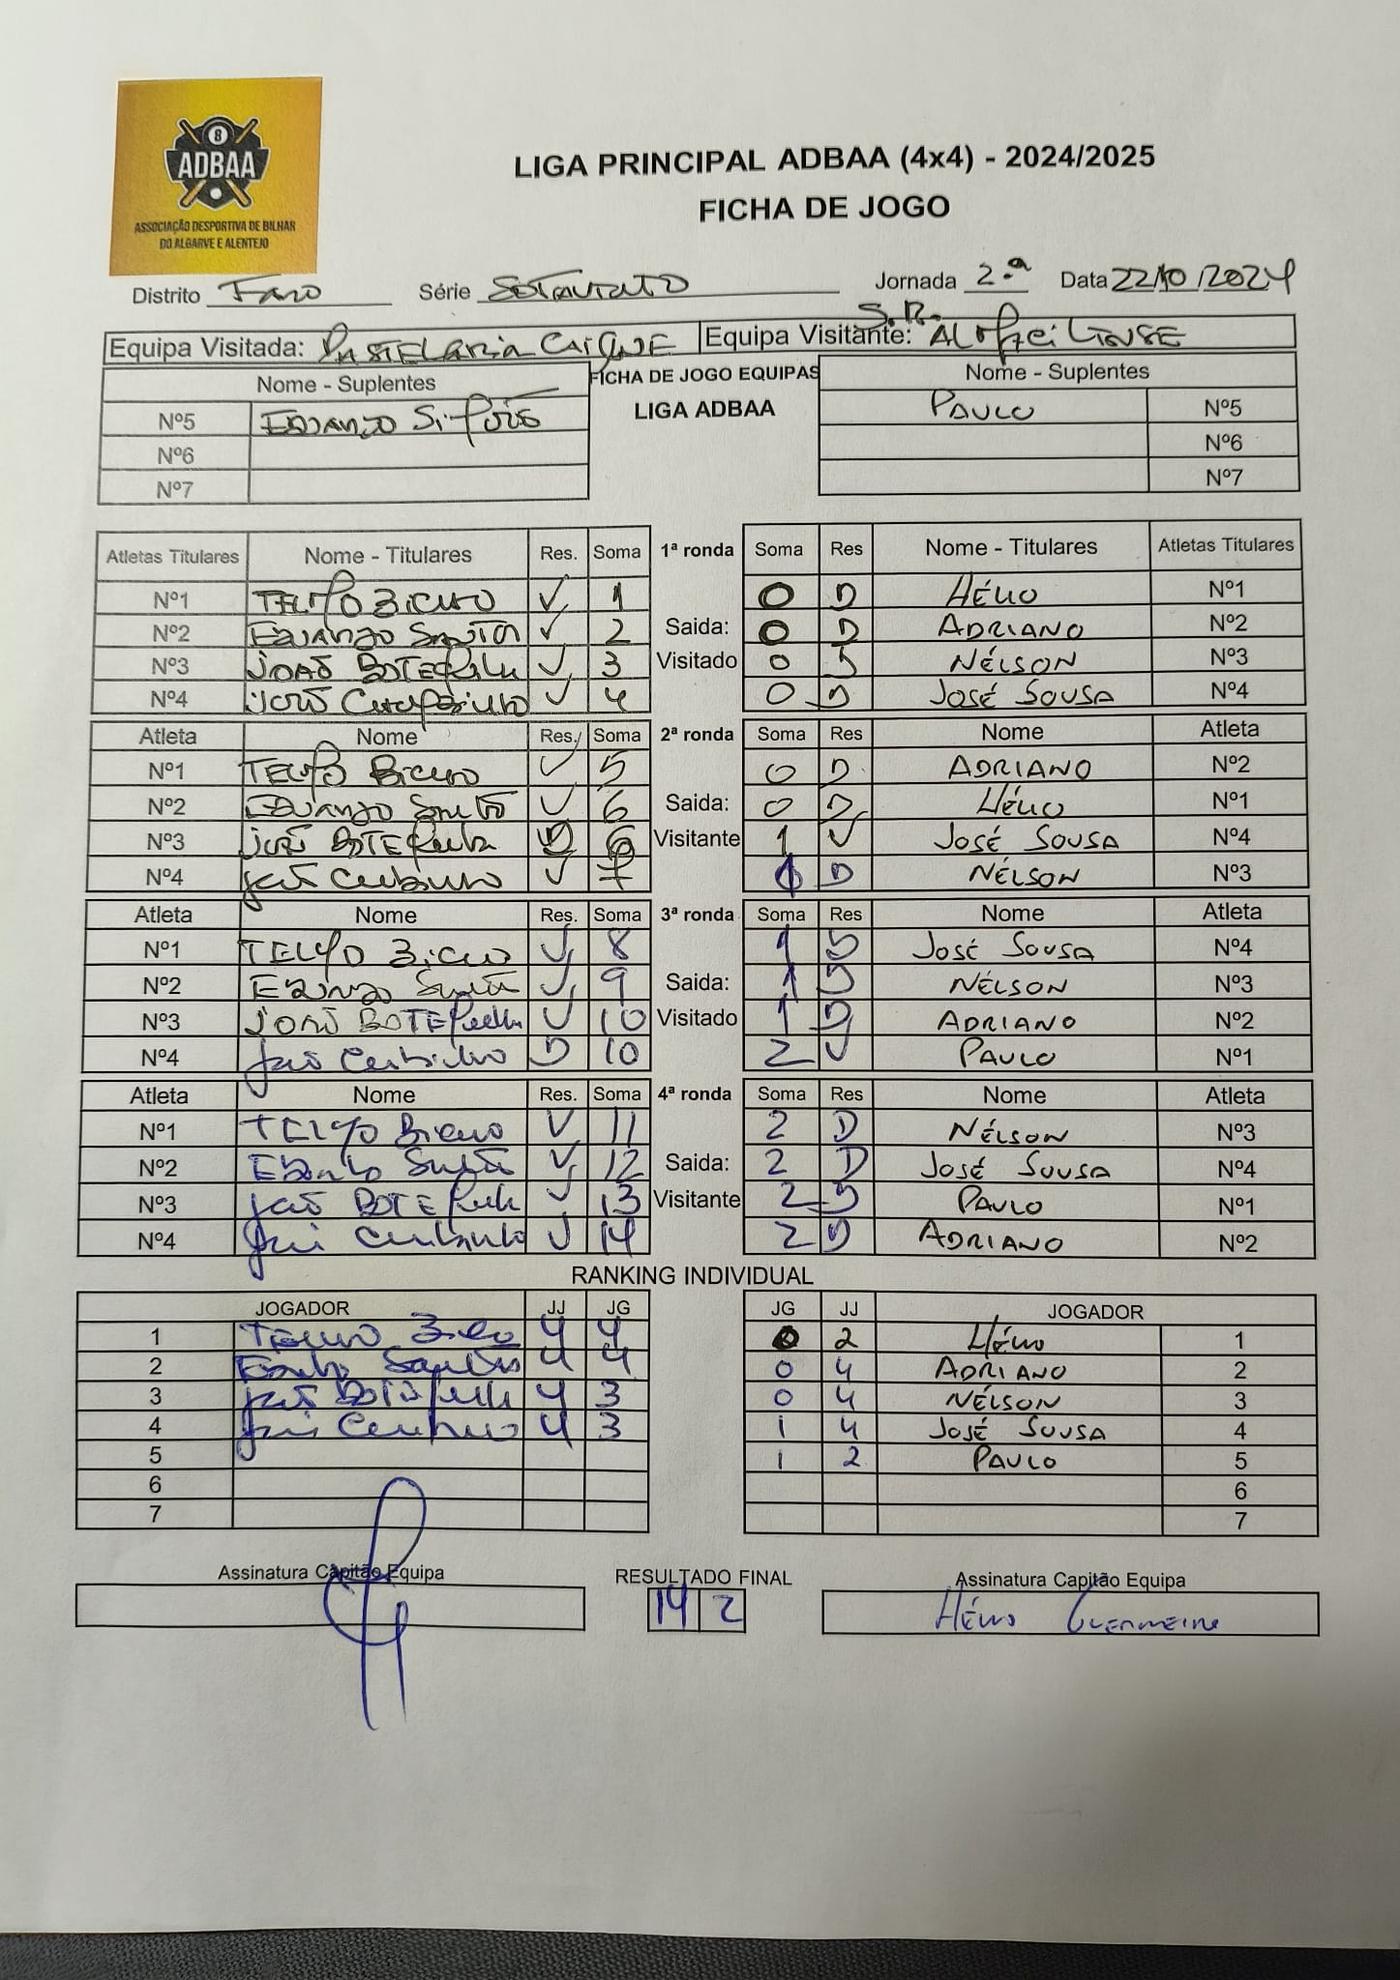 8
ADBAA
ASSOCIAÇÃO DESPORTIVA DE BILHAR
DO ALGARVE E ALENTEJO
LIGA PRINCIPAL ADBAA (4x4) - 2024/2025
FICHA DE JOGO
Distrito Faro Série Sotavento Jornada 2.ª Data 22/10/2024
Equipa Visitada: PASTELARIA CAIQUE Equipa Visitante: S.R. ALFEILENSE
Nome - Suplentes FICHA DE JOGO EQUIPAS Nome - Suplentes
LIGA ADBAA
Nº5 EDUARDO PAULO Nº5
Nº6 Nº6
Nº7 Nº7
Atletas Titulares Nome - Titulares Res. Soma 1ª ronda Soma Res Nome - Titulares Atletas Titulares
Nº1 TELMO BICHO V 1 0 D HÉLIO Nº1
Nº2 EDUARDO SANTOS V 2 Saida: 0 D ADRIANO Nº2
Nº3 JOÃO BOTEQUILHA V 3 Visitado 0 D NÉLSON Nº3
Nº4 JOÃO V 4 0 D JOSÉ SOUSA Nº4
Atleta Nome Res. Soma 2ª ronda Soma Res Nome Atleta
Nº1 TELMO BICHO V 5 0 D ADRIANO Nº2
Nº2 EDUARDO SANTOS V 6 Saida: 0 D HÉLIO Nº1
Nº3 JOÃO BOTEQUILHA D 6 Visitante 1 V JOSÉ SOUSA Nº4
Nº4 JOÃO V 7 1 D NÉLSON Nº3
Atleta Nome Res. Soma 3ª ronda Soma Res Nome Atleta
Nº1 TELMO BICHO V 8 1 D JOSÉ SOUSA Nº4
Nº2 EDUARDO SANTOS V 9 Saida: 1 D NÉLSON Nº3
Nº3 JOÃO BOTEQUILHA V 10 Visitado 1 D ADRIANO Nº2
Nº4 JOÃO D 10 2 V PAULO Nº1
Atleta Nome Res. Soma 4ª ronda Soma Res Nome Atleta
Nº1 TELMO BICHO V 11 2 D NÉLSON Nº3
Nº2 EDUARDO SANTOS V 12 Saida: 2 D JOSÉ SOUSA Nº4
Nº3 JOÃO BOTEQUILHA V 13 Visitante 2 D PAULO Nº1
Nº4 JOÃO V 14 2 D ADRIANO Nº2
RANKING INDIVIDUAL
JOGADOR JJ JG JG JJ JOGADOR
1 TELMO BICHO 4 4 0 2 HÉLIO 1
2 EDUARDO SANTOS 4 4 0 4 ADRIANO 2
3 JOÃO BOTEQUILHA 4 3 0 4 NÉLSON 3
4 JOÃO 4 3 1 4 JOSÉ SOUSA 4
5 1 2 PAULO 5
6 6
7 7
Assinatura Capitão Equipa RESULTADO FINAL Assinatura Capitão Equipa
14 2 HÉLIO